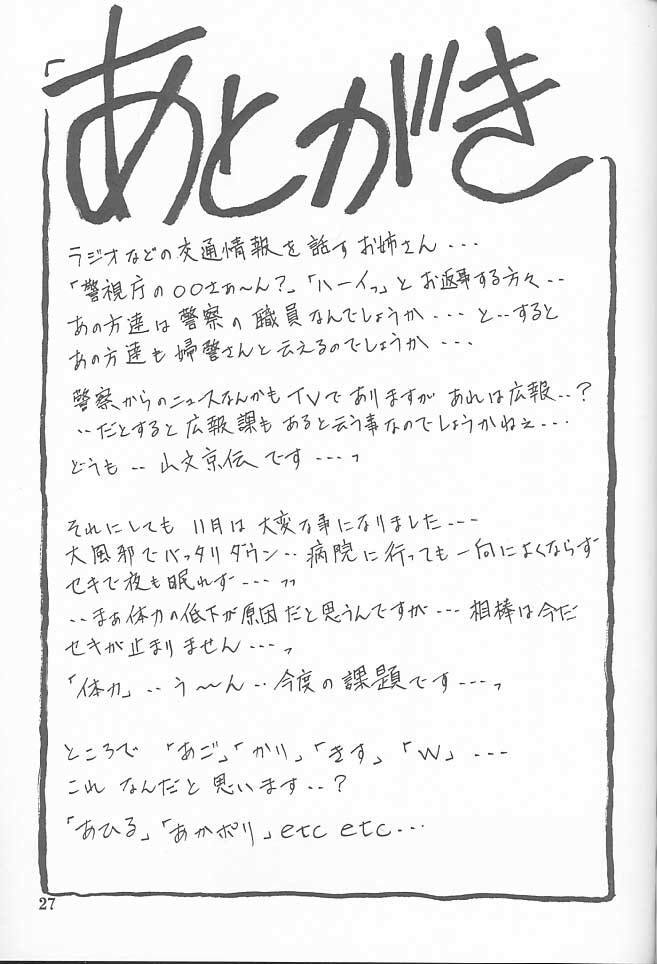 「あとがき
ラジオなどの交通情報を話すお姉さん・・・
「警視庁の〇〇さぁ〜ん?」「ハーイっ」とお返事する方々・・
あの方達は警察の職員なんでしょうか・・・と・・すると
あの方達も婦警さんと云えるのでしょうか・・・
警察からのニュースなんかもTVでありますがあれは広報・・?
・・だとすると広報課もあると云う事なのでしょうかねぇ・・・
どうも・・山文京伝です・・・っ
それにしても 11月は大変な事になりました・・・
大風邪でバッタリダウン・・病院に行っても一向によくならず
セキで夜も眠れず・・・っっ
・・まぁ体力の低下が原因だと思うんですが・・・相棒は今だ
セキが止まりません・・・っ
「体力」・・う〜〜ん・・今度の課題です・・・っ
ところで 「あご」「かり」「きす」「W」・・・
これ なんだと思います・・?
「あひる」「あかポリ」etc etc・・・
27